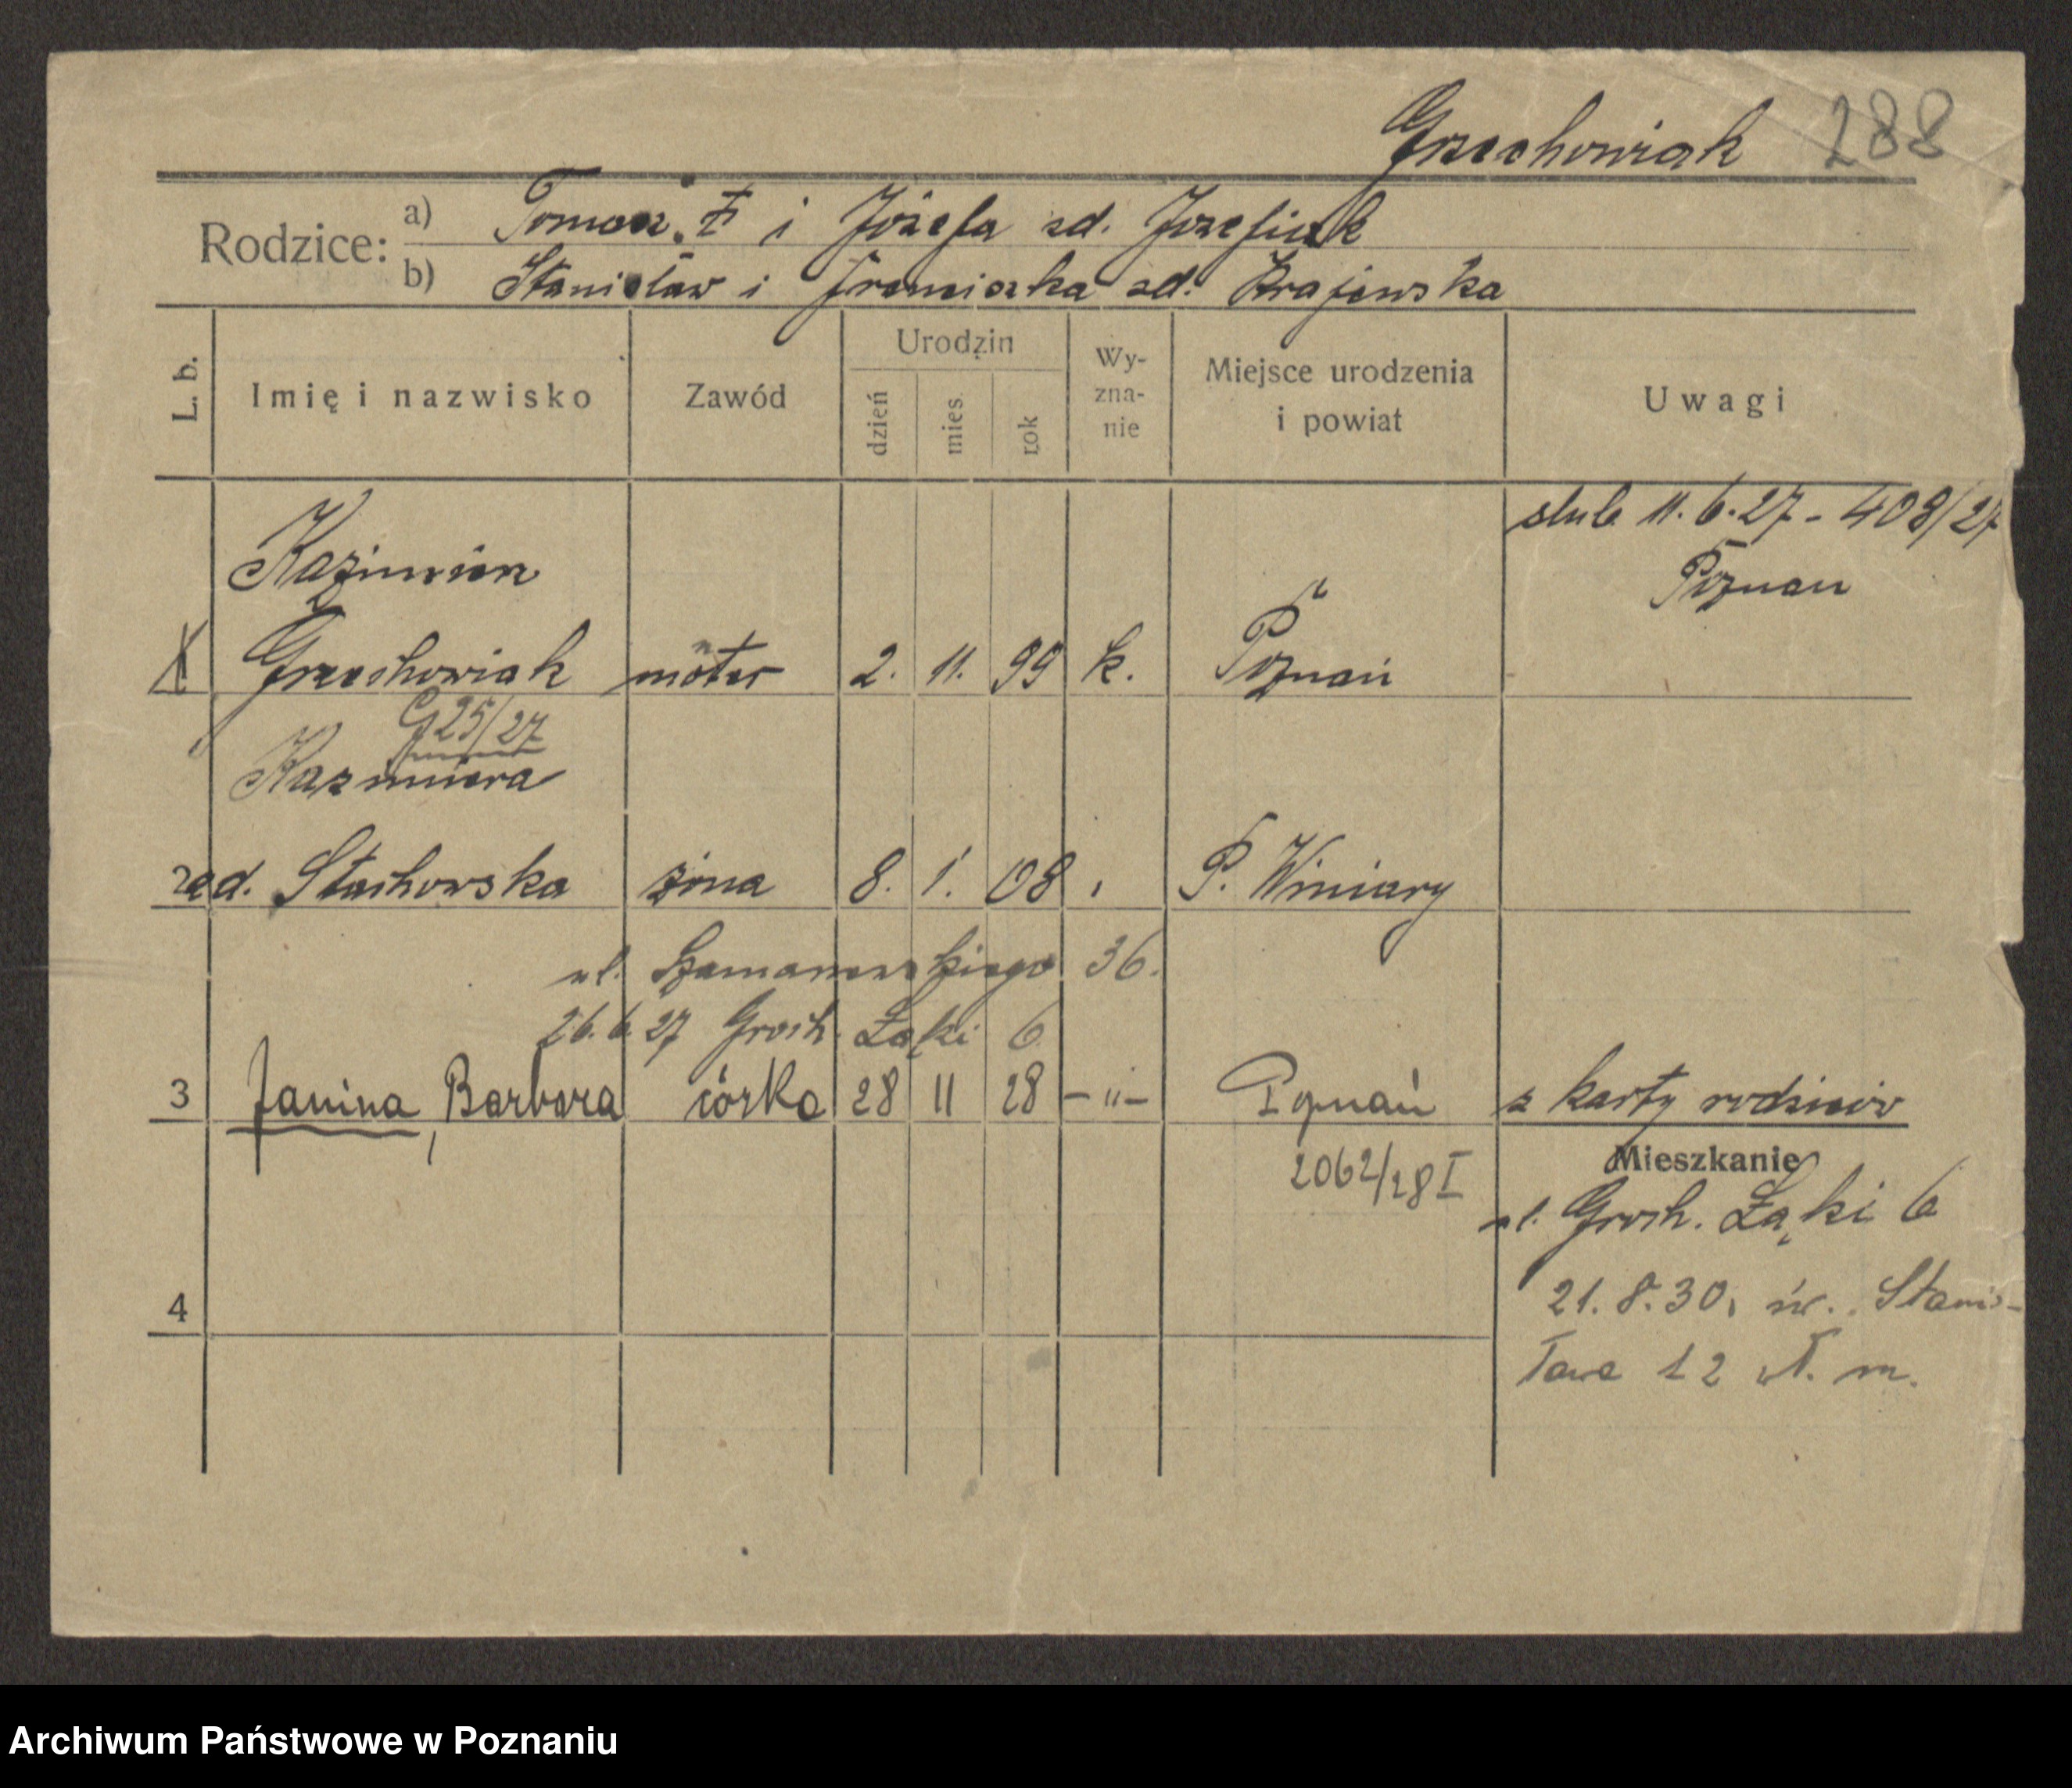 Grzechowiak 288
Rodzice: a) Tomasz Ŧ i Józefa zd. Jozefiak
b) Stanisław i Franciszka zd. Krajewska
L. b. Imię i nazwisko Zawód Urodzin dzień mies. rok Wy-zna-nie Miejsce urodzenia i powiat Uwagi
ślub 11.6.27 - 408/27
Poznań
Kazimierz
1 Grzechowiak 2. 11. 99 k. Poznań
G 25/27
Kazimiera
zd. Stachowska żona 8. 1. 08 P. Winiary
ul. Szamarzewskiego 36.
26.6.27 Groch. Łąki 6
3 Janina, Barbara córka 28 11 28 -"- Poznań z karty rodziców
2062/28 I
Mieszkanie
ul. Groch. Łąki 6
4
21.8.30, św. Stanis-
ława 12 m.
Archiwum Państwowe w Poznaniu